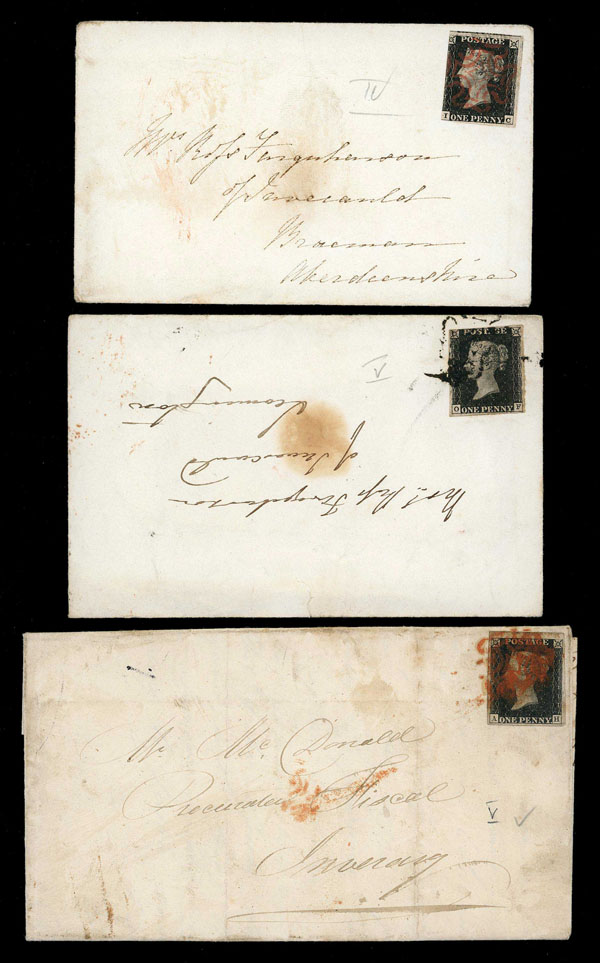 POSTAGE
I C
ONE PENNY
IV
Mrs Ross Farquharson
of Invercauld
Braemar
Aberdeenshire
POSTAGE
O F
ONE PENNY
V
Mrs Ross Farquharson
of Invercauld
Leamington
POSTAGE
A H
ONE PENNY
Mr. Mc. Donald
Procurator Fiscal
V
Inveraray